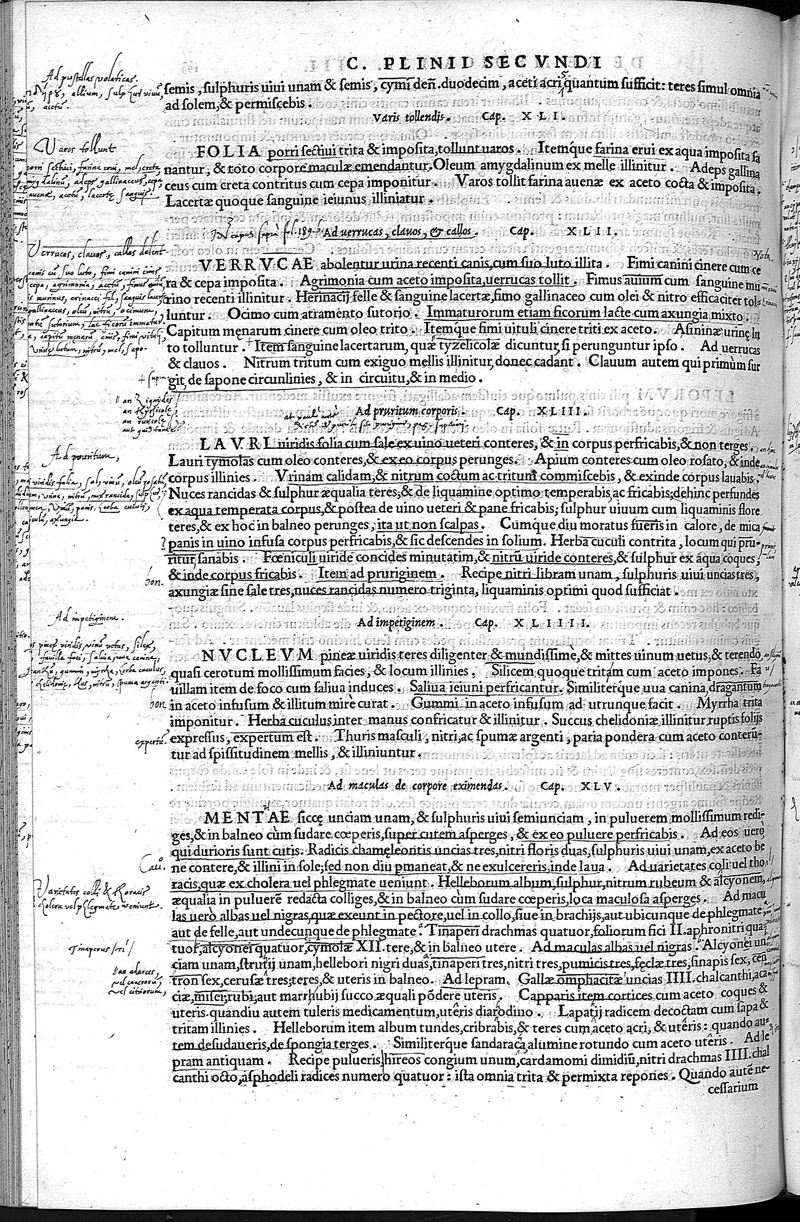 C. PLINII SECVNDI
semis, sulphuris uiui unam & semis, cymi deñ. duodecim, aceti acris quantum sufficit: teres simul omnia
ad solem, & permiscebis.
Varis tollendis. Cap. XLI.
FOLIA porri sectiui trita & imposita, tollunt uaros. Itemque farina erui ex aqua imposita sa
nantur, & toto corpore maculæ emendantur. Oleum amygdalinum ex melle illinitur. Adeps gallina
ceus cum creta contritus cum cepa imponitur. Varos tollit farina auenæ ex aceto cocta & imposita.
Lacertæ quoque sanguine ieiunus illiniatur.
Ad verrucas, clauos, & callos. Cap. XLII.
VERRVCAE abolentur urina recenti canis, cum suo luto illita. Fimi canini cinere cum ce
ra & cepa imposita. Agrimonia cum aceto imposita, uerrucas tollit. Fimus auium cum sanguine mu
rino recenti illinitur. Herinacij felle & sanguine lacertæ, fimo gallinaceo cum olei & nitro efficaciter tol
luntur. Ocimo cum atramento sutorio. Immaturorum etiam ficorum lacte cum axungia mixto.
Capitum menarum cinere cum oleo trito. Itemque fimi uituli cinere triti ex aceto. Asininæ urinę lu
to tolluntur. Item sanguine lacertarum, quæ tyzelicolæ dicuntur, si perunguntur ipso. Ad uerrucas
& clauos. Nitrum tritum cum exiguo mellis illinitur, donec cadant. Clauum autem qui primùm sur
git, de sapone circunlinies, & in circuitu, & in medio.
Ad pruritum corporis. Cap. XLIII.
LAVRI uiridis folia cum sale ex uino ueteri conteres, & in corpus perfricabis, & non terges.
Lauri tymolas cum oleo conteres, & ex eo corpus perunges. Apium conteres cum oleo rosato, & inde
corpus illinies. Vrinam calidam, & nitrum coctum ac tritum commiscebis, & exinde corpus lauabis.
Nuces rancidas & sulphur æqualia teres, & de liquamine optimo temperabis, ac fricabis; dehinc perfundes
ex aqua temperata corpus, & postea de uino ueteri & pane fricabis; sulphur uiuum cum liquaminis flore
teres, & ex hoc in balneo perunges, ita ut non scalpas. Cumque diu moratus fueris in calore, de mica
panis in uino infusa corpus perfricabis, & sic descendes in solium. Herba cuculi contrita, locum qui pru-
ritur, sanabis. Fœniculi uiride concides minutatim, & nitrũ uiride conteres, & sulphur ex aqua coques,
& inde corpus fricabis. Item ad pruriginem. Recipe nitri libram unam, sulphuris uiui uncias tres,
axungiæ sine sale tres, nuces rancidas numero triginta, liquaminis optimi quod sufficiat.
Ad impetiginem. Cap. XLIIII.
NVCLEVM pineæ uiridis teres diligenter & mundissime, & mittes uinum uetus, & terendo
quasi cerotum mollissimum facies, & locum illinies. Silicem quoque tritam cum aceto impones. Fa
uillam item de foco cum saliua induces. Saliua ieiuni perfricantur. Similiterque uua canina, dragantum
in aceto infusum & illitum mire curat. Gummi in aceto infusum ad utrunque facit. Myrrha trita
imponitur. Herba cuculus inter manus confricatur & illinitur. Succus chelidoniæ illinitur ruptis folijs
expressus, expertum est. Thuris masculi, nitri, ac spumæ argenti, paria pondera cum aceto conterũ-
tur ad spissitudinem mellis, & illiniuntur.
Ad maculas de corpore eximendas. Cap. XLV.
MENTAE siccę unciam unam, & sulphuris uiui semiunciam, in puluerem mollissimum redi-
ges, & in balneo cùm sudare cœperis, super cutem asperges, & ex eo puluere perfricabis. Ad eos uerò
qui durioris sunt cutis. Radicis chamęleontis uncias tres, nitri floris duas, sulphuris uiui unam, ex aceto be
ne contere, & illini in sole; sed non diu pmaneat, & ne exulcereris, inde laua. Ad uarietates coli uel tho
racis, quæ ex cholera uel phlegmate ueniunt. Helleborum album, sulphur, nitrum rubeum & alcyonem,
æqualia in puluerẽ redacta colliges, & in balneo cum sudare cœperis, loca maculosa asperges. Ad macu
las uerò albas uel nigras, quæ exeunt in pectore, uel in collo, siue in brachijs, aut ubicunque de phlegmate,
aut de felle, aut undecunque de phlegmate. Tinaperi drachmas quatuor, foliorum fici II. aphronitri qua
tuor, alcyonei quatuor, cymolæ XII. tere, & in balneo utere. Ad maculas albas uel nigras. Alcyonei un
ciam unam, strutij unam, hellebori nigri duas, tinaperi tres, nitri tres, pumicis tres, fęclæ tres, sinapis sex, cen
tron sex, cerusæ tres; teres, & uteris in balneo. Ad lepram. Gallæ omphacitæ uncias IIII. chalcanthi, aca
ciæ, misei; rubi; aut marrhubij succo æquali põdere uteris. Capparis item cortices cum aceto coques &
uteris. quandiu autem tuleris medicamentum, utêris diarodino. Lapatij radicem decoctam cum sapa &
tritam illinies. Helleborum item album tundes, cribrabis, & teres cum aceto acri, & utêris: quando au-
tem desudaueris, de spongia terges. Similiterque sandaraca alumine rotundo cum aceto utêris. Ad le
pram antiquam. Recipe pulueris hireos congium unum, cardamomi dimidiũ, nitri drachmas IIII. chal
canthi octo, asphodeli radices numero quatuor: ista omnia trita & permixta repones. Quando autẽ ne-
cessarium
Ad pustellas volaticas.
Varos tollunt
Verrucas, clavos, callos delent
Ad pruritum,
bon.
Ad impetiginem.
bon
expertũ.
Varietates colli & thoracis